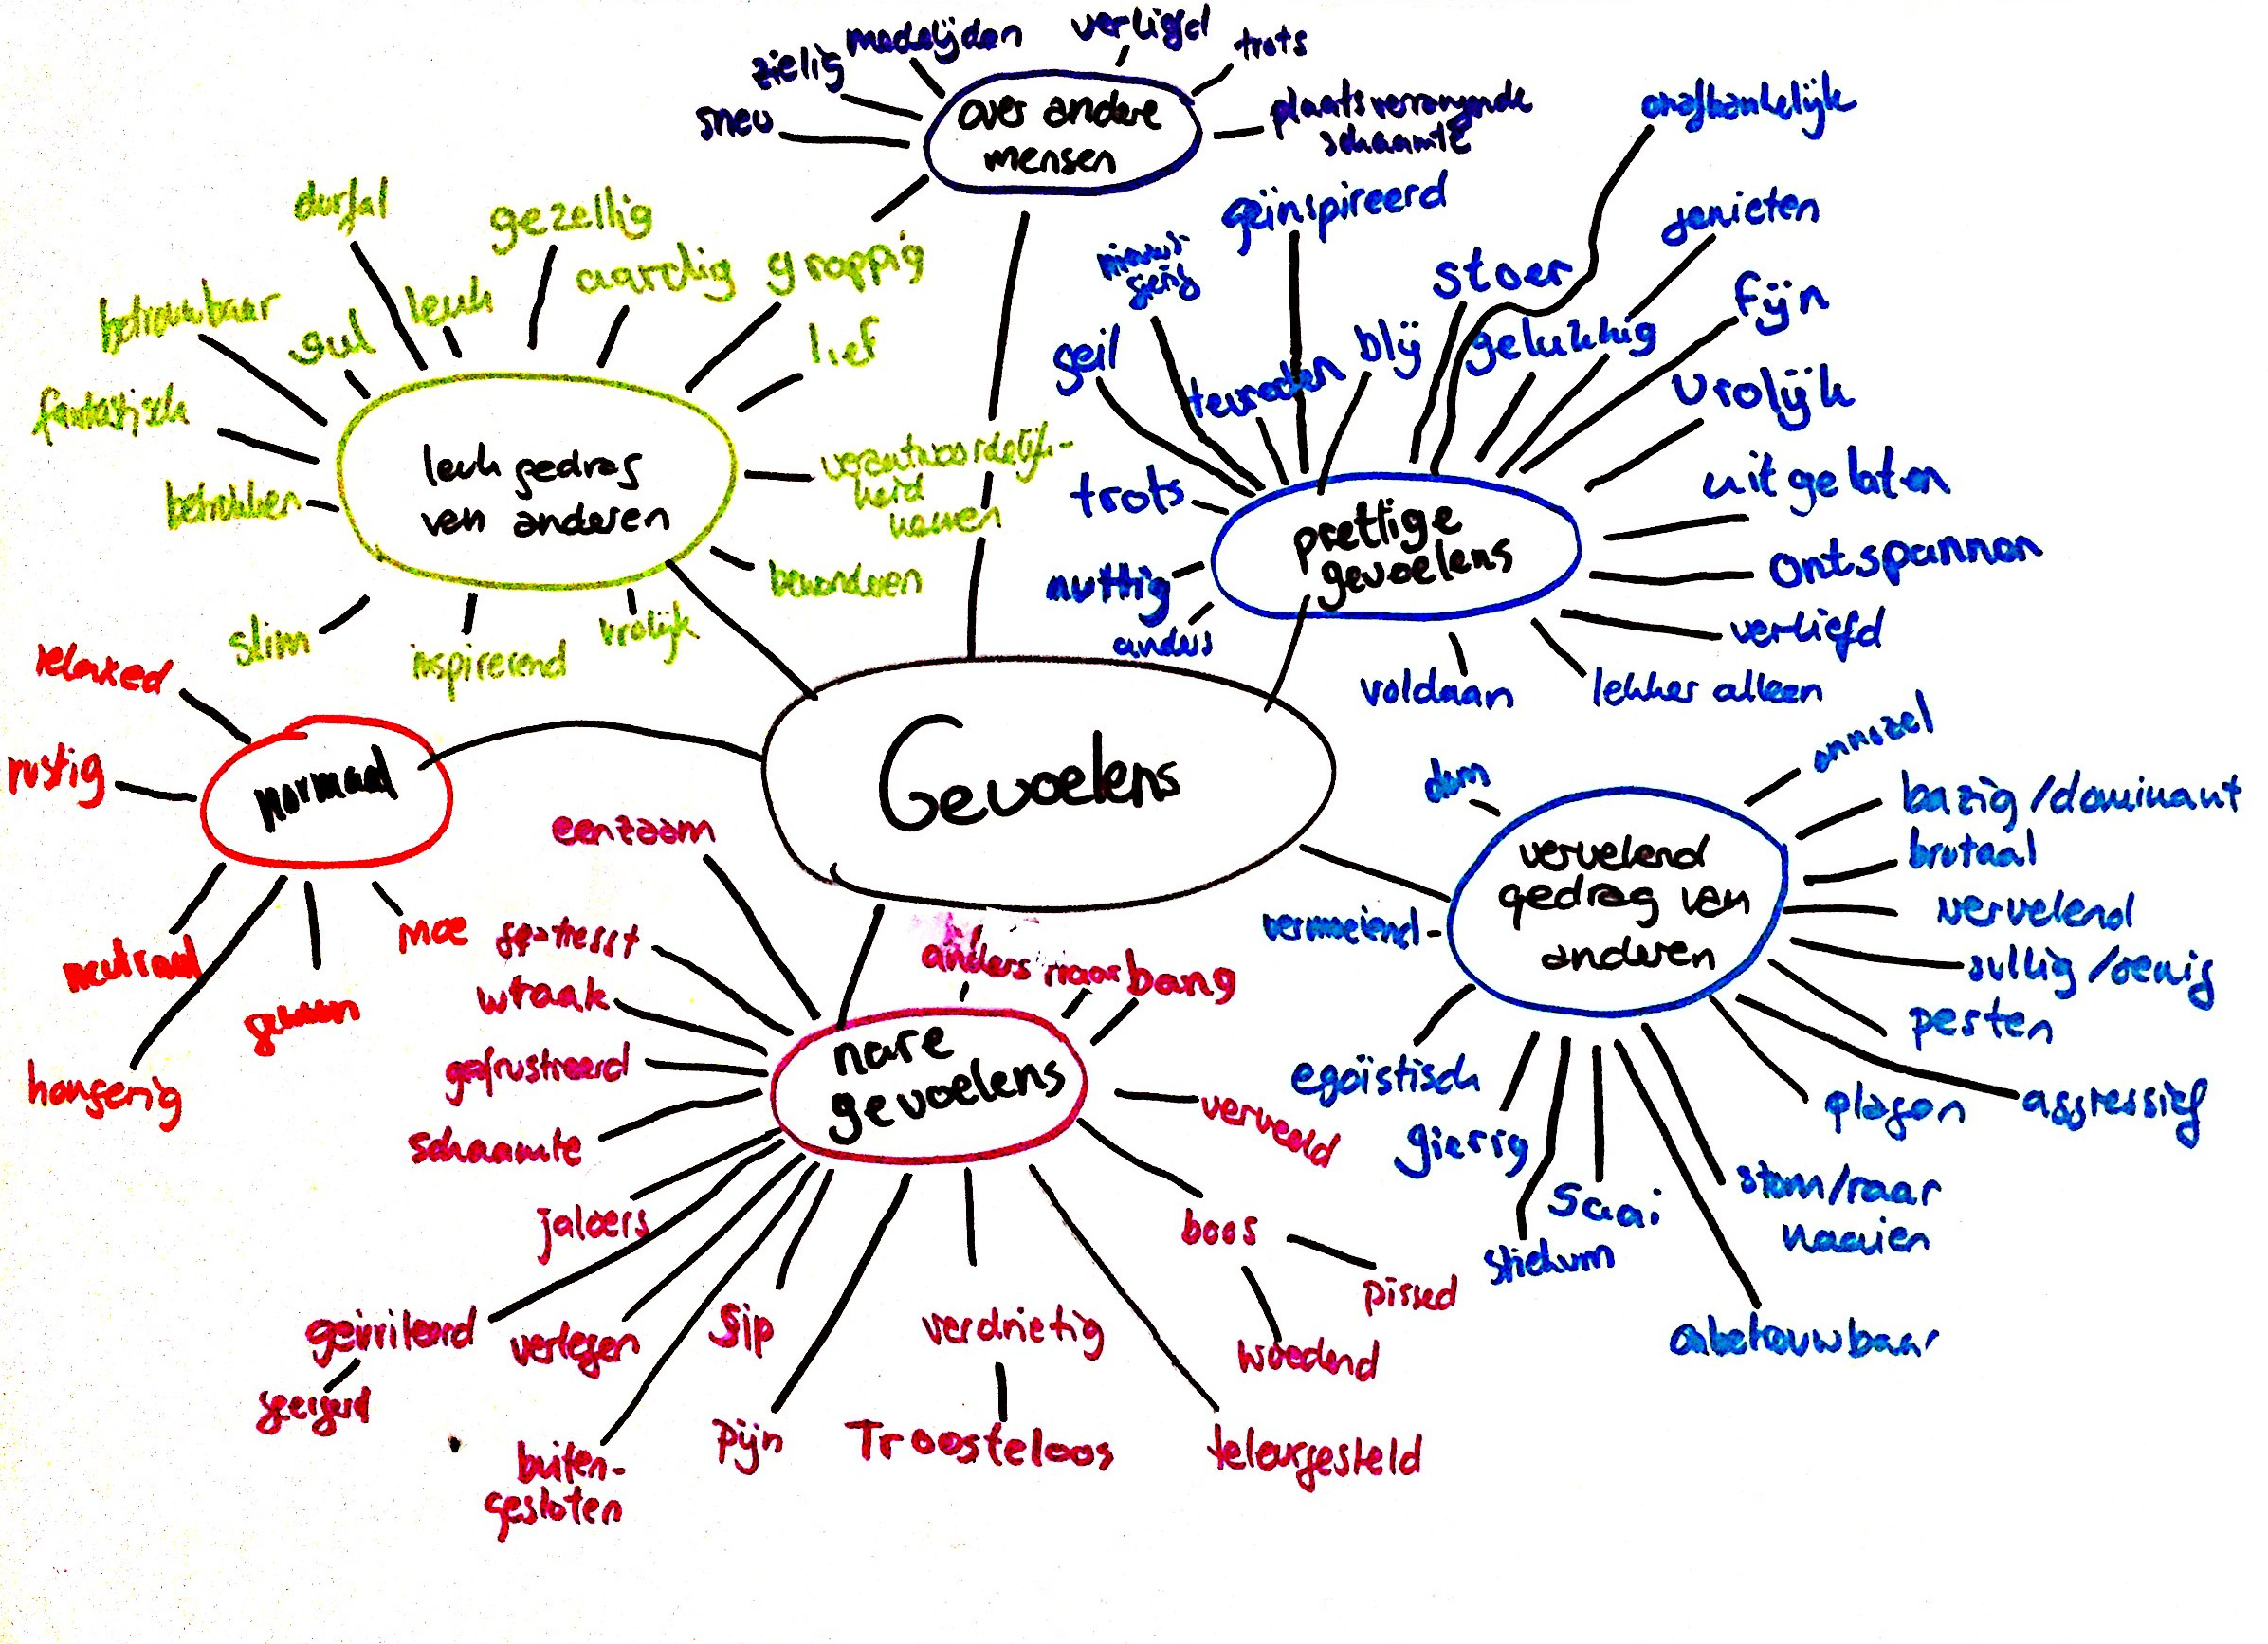 medelijden
verliefd
trots
zielig
sneu
over andere
mensen
plaatsvervangende
schaamte
onafhankelijk
durfal
gezellig
aardig
grappig
betrouwbaar
gul
leuk
lief
fantastisch
leuk gedrag
van anderen
verantwoordelijk-
heid
nemen
betrokken
bewonderen
slim
inspirerend
vrolijk
geïnspireerd
genieten
nieuws-
gierig
stoer
fijn
geil
tevreden
blij
gelukkig
vrolijk
trots
uitgelaten
prettige
gevoelens
ontspannen
nuttig
anders
verliefd
voldaan
lekker alleen
relaxed
rustig
normaal
Gevoelens
neutraal
moe
gewoon
hongerig
onnozel
dom
bazig/dominant
brutaal
vervelend
gedrag van
anderen
vervelend
vermoeiend
sullig/oenig
pesten
egoïstisch
plagen
aggressief
gierig
saai
stom/raar
naaien
stiekum
onbetrouwbaar
eenzaam
gestresst
anders naar
bang
wraak
nare
gevoelens
gefrustreerd
verveeld
schaamte
jaloers
boos
pissed
woedend
geïrriteerd
verlegen
sip
verdrietig
buiten-
gesloten
pijn
Troosteloos
teleurgesteld